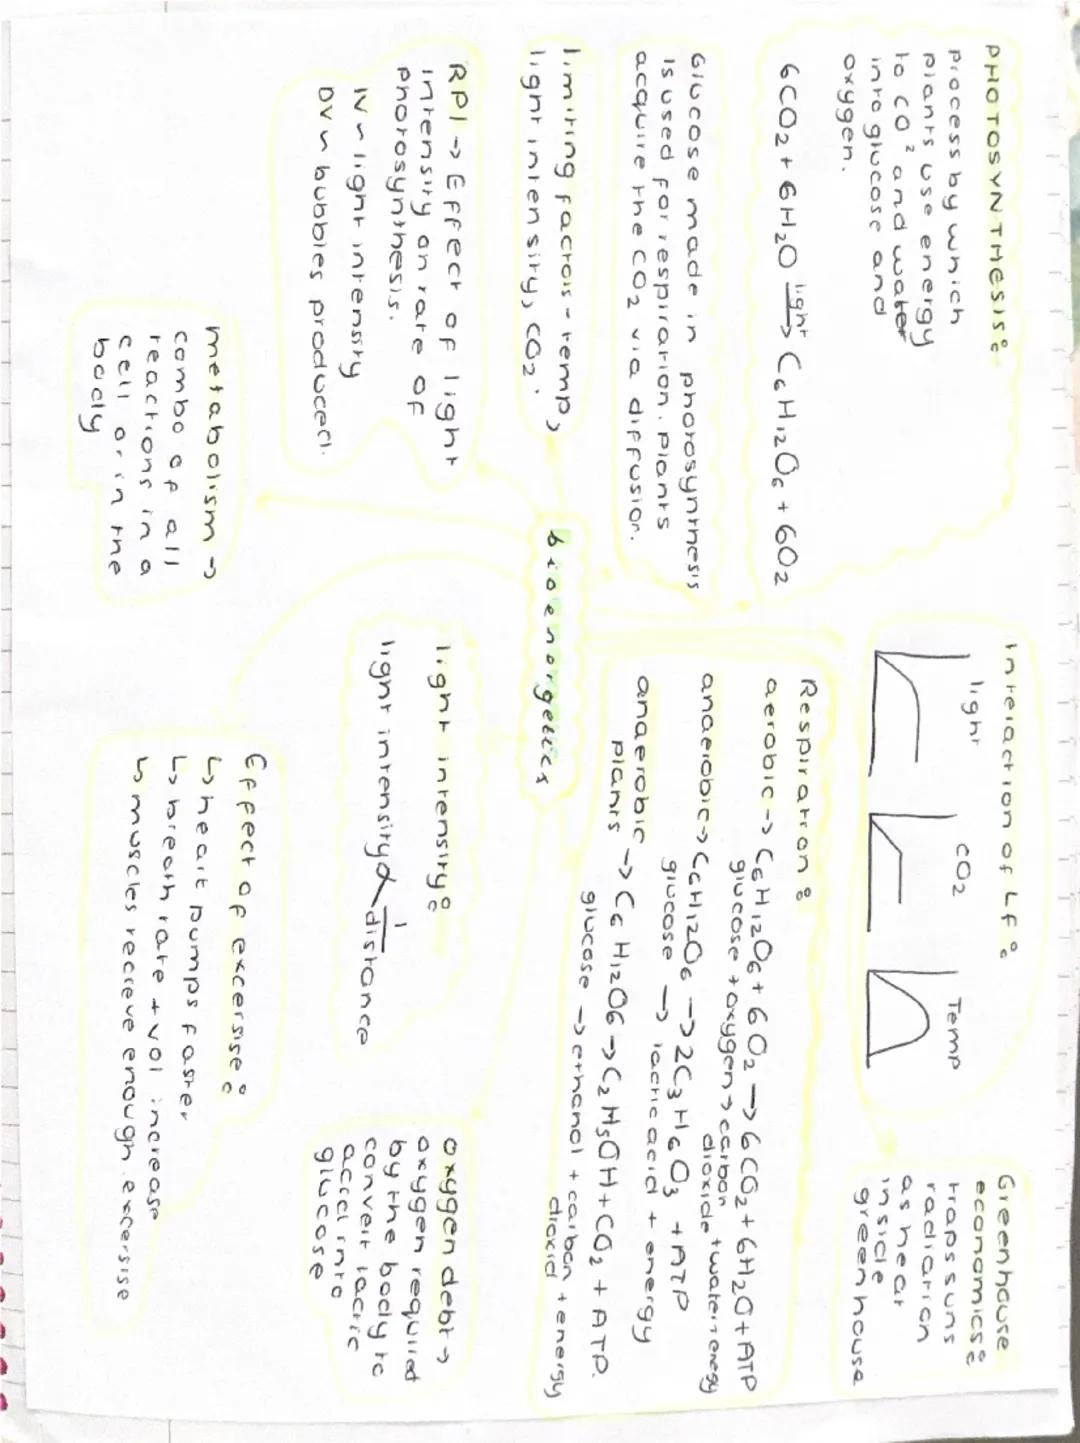 PHOTOSYNTHESIS:
process by which
plants use energy
to CO² and water
into glucose and
oxygen.
6CO2 + 6H2O light → C6H12O6 + 6O2
Glucose made in photosynthesis
is used for respiration. Plants
acquire the CO2 via diffusion.
limiting factors - temp,
light intensity, CO2.
RP1 → Effect of light
intensity on rate of
photosynthesis.
IV ~ light intensity
DV ~ bubbles produced.
metabolism →
combo of all
reactions in a
cell or in the
body
bioenergetics
interaction of LF:
light CO2 Temp
Greenhouse
economics:
traps suns
radiation
as heat
inside
greenhouse
Respiration:
aerobic → C6H12O6 + 6O2 → 6CO2 + 6H2O + ATP
glucose + oxygen → carbon
dioxide + water + energy
anaerobic → C6H12O6 → 2C3H6O3 + ATP
glucose → lactic acid + energy
anaerobic → C6H12O6 → C2H5OH + CO2 + ATP.
plants
glucose → ethanol + carbon + energy
dioxid
light intensity:
light intensity α 1
distance
oxygen debt →
oxygen required
by the body to
convert lactic
acid into
glucose
Effect of excersise:
↳ heart pumps faster
↳ breath rate + vol increase
↳ muscles recieve enough. excersise